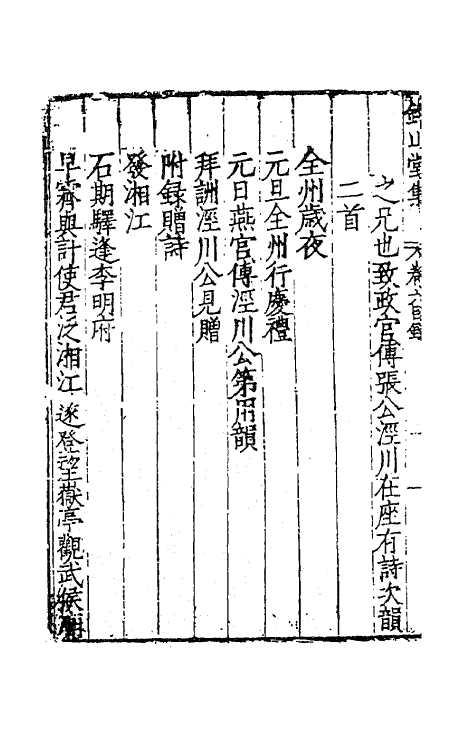 鈐山堂集 卷六目錄
之兄也致政官傅張公涇川在座有詩次韻
二首
全州歲夜
元旦全州行慶禮
元日燕官傅涇川公第用韻
拜謝涇川公見贈
附錄贈詩
發湘江
石期驛逢李明府
早霽與計使君泛湘江遂登望嶽亭觀武侯廟